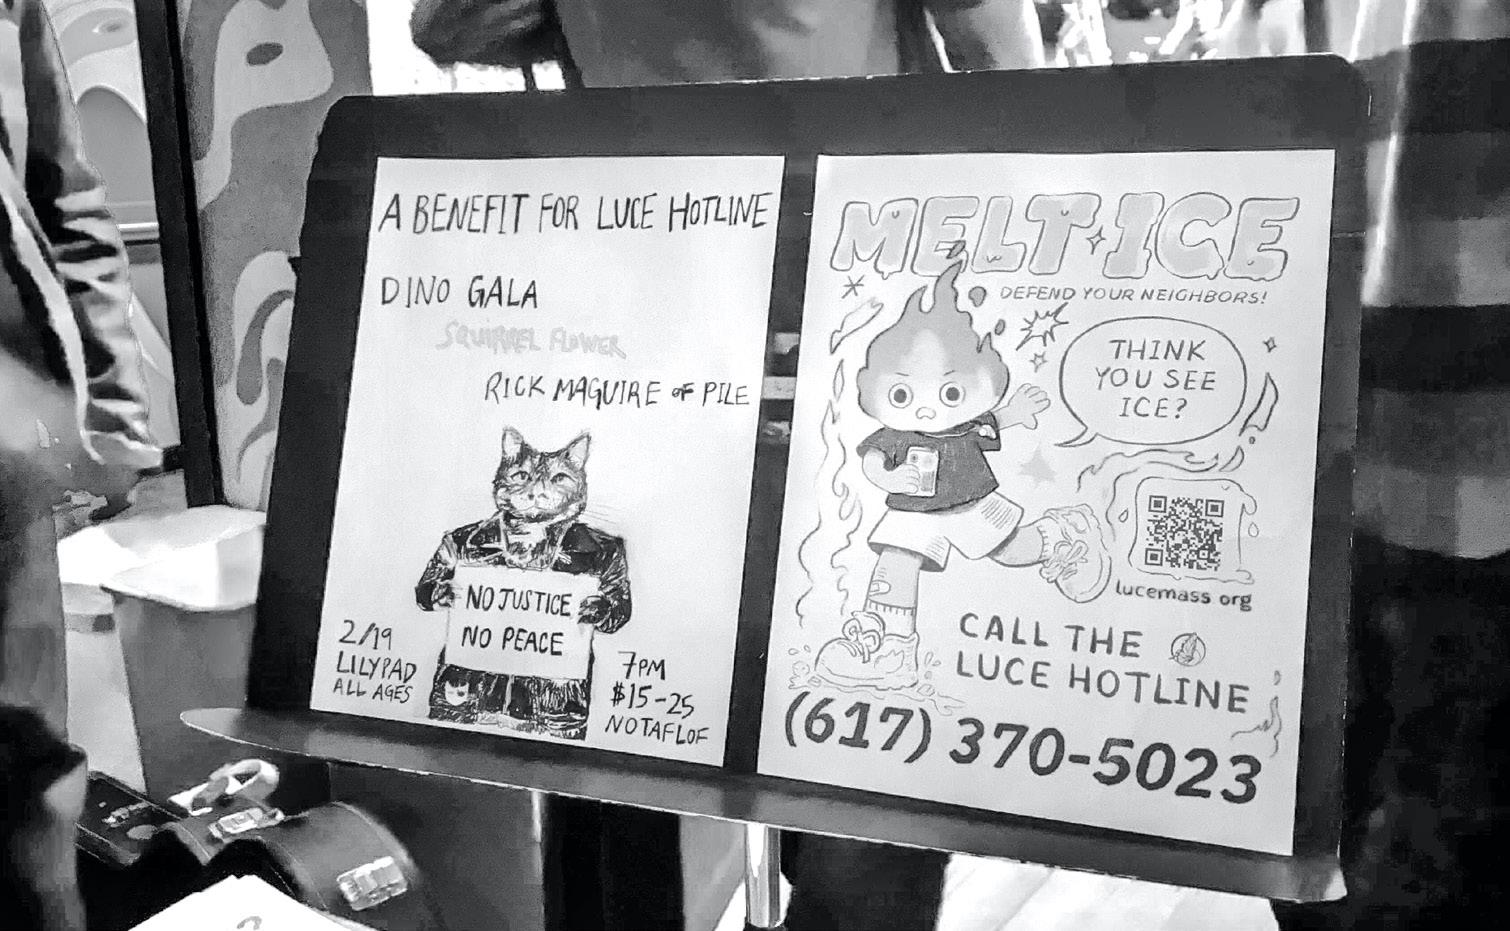 A BENEFIT FOR LUCE HOTLINE
DINO GALA
SQUIRREL FLOWER
RICK MAGUIRE OF PILE
NO JUSTICE
NO PEACE
2/19
LILYPAD
ALL AGES
7PM
$15-25
NOTAFLOF
MELT ICE
DEFEND YOUR NEIGHBORS!
THINK
YOU SEE
ICE?
lucemass org
CALL THE
LUCE HOTLINE
(617) 370-5023